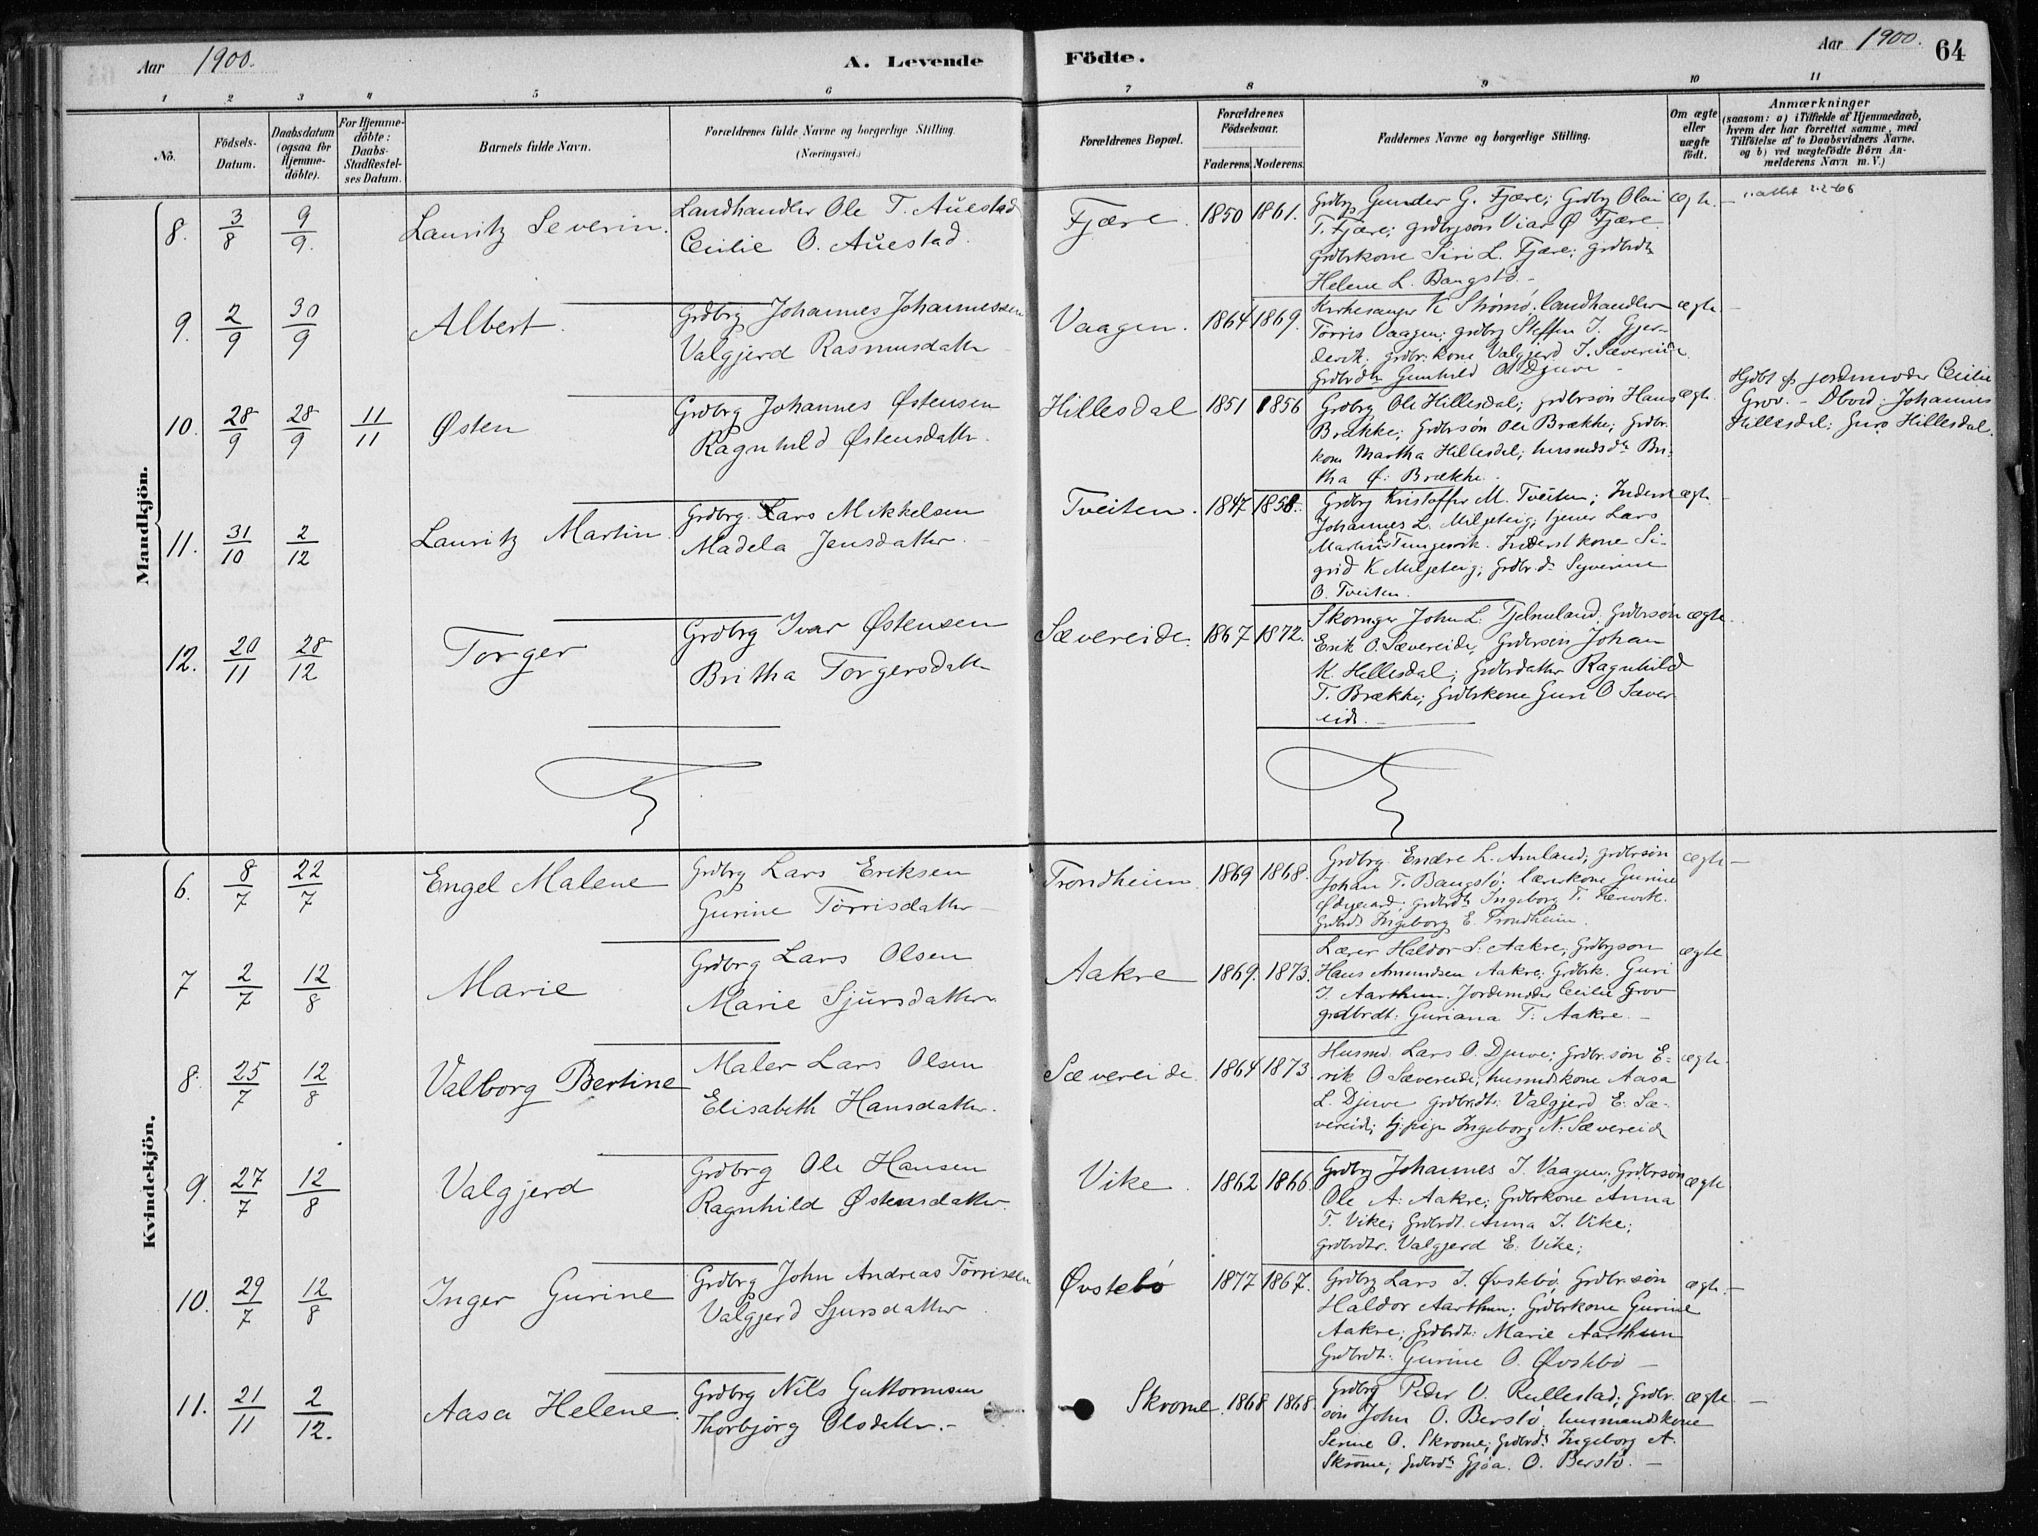 Aar 1900.
A. Levende
Födte.
Aar 1900.
64
1 2 3 4 5 6 7 8 9 10 11
No.
Födsels-
Datum.
Daabsdatum
(ogsaa for
Hjemme-
döbte).
For Hjemme-
döbte:
Daabs-
Stadfæstel-
ses Datum.
Barnets fulde Navn.
Forældrenes fulde Navne og borgerlige Stilling.
(Næringsvei.)
Forældrenes Bopæl.
Forældrenes
Födselsaar.
Faderens. Moderens.
Faddernes Navne og borgerlige Stilling.
Om ægte
eller
uægte
födt.
Anmærkninger
(saasom: a) i Tilfælde af Hjemmedaab,
hvem der har forrettet samme, med
Tilföielse af to Daabsvidners Navne,
og b) ved uægtefödte Börn An-
melderens Navn m. V.)
Mandkjön.
8. 3/8 9/9. Lauritz Severin.
Landhandler Ole T. Auestad
Cecilie O. Auestad.
Fjære. 1850 1861.
Grdbrg Gunder G. Fjære; Grdbrg Olai
T. Fjære; grdbrgsøn Viar Ø Fjære.
Grdbrkone Siri L. Fjære; grdbrdtr
Helene L. Bangstø. -
ægte. -
9. 2/9 30/9 Albert.
Grdbrg Johannes Johannessen
Valgjerd Rasmusdattr -
Vaagen. 1864 1869.
Kirkesanger K Strømø; landhandler
Tørris Vaagen; grdbrg Steffen J. Gjer-
devik; grdbr.kone Valgjerd J. Sævereide
Grdbrdtr Gunhild O Djuve -
ægte. -
10. 28/9 28/9 11/11 Østen
Grdbrg Johannes Østensen
Ragnhild Østensdattr.
Hillesdal 1851 1856
Grdbrg Ole Hillesdal; grdbrsøn Hans
Brække; Grdbrsøn Ole Brække; Grdbr.
kone Martha Hillesdal; husmdsdtr Bri-
tha Ø. Brække.
ægte.
Hjdbt af jordemoder Cecilie
Grov. - Dbvid: Johannes
Hillesdal; Guro Hillesdal.
11. 31/10 2/12 Lauritz Martin.
Grdbrg. Lars Mikkelsen
Madela Jensdattr. -
Tveiten. 1847 1858.
Grdbrg Kristoffer M. Tveiten; Inderst
Johannes L. Miljeteig; tjener Lars
Martin Tungesvik. Inderst kone Si-
grid K Miljeteig; Grdbr.dtr Syverine
O. Tveiten.
ægte -
12. 20/11 28/12 Torger
Grdbrg Ivar Østensen
Britha Torgersdattr
Sævereide. 1867 1872.
Skomger John L. Tjelmeland; Grdbrsøn
Erik O. Sævereide; Grdbrsøn Johan
K. Hillesdal; Grdbrdatter Ragnhild
T. Brække; Grdbrkone Guri O Sæver-
eide. -
ægte.
Kvindekjön.
6. 8/7 22/7 Engel Malene
Grdbrg Lars Eriksen
Gurine Tørrisdattr -
Trondheim. 1869 1868.
Grdbrg. Endre L. Amland; grdbrsøn
Johan T. Bangstø; lærerkone Gurine
Ødegaard; grdbrdtr Ingeborg T.
Grdbrdtr Ingeborg E. Trondheim.
ægte -
7 2/7 12/8 Marie
Grdbrg Lars Olsen
Marie Sjursdattr.
Aakre 1869. 1873.
Lærer Haldor S. Aakre; Grdbrgsøn
Hans Amundsen Aakre; Grdbrk. Guri
J. Aarthun. Jordemoder Cecilie Grov
grdbrdt: Guriana T. Aakre. -
ægte
8. 25/7 12/8 Valborg Bertine
Maler Lars Olsen
Elisabeth Hansdattr.
Sævereide 1864 1873
Husmd. Lars O. Djuve; Grdbr.søn E-
rik O Sævereide; husmdskone Aasa
L. Djuve grdbrdt: Valgjerd E. Sæ-
vereide; tj.pige Ingeborg N. Sævereide
ægte.
9. 27/7 12/8 Valgjerd
Grdbrg Ole Hansen
Ragnhild Østensdattr.
Vike. 1862 1866
Grdbrg Johannes J. Vaagen; Grdbrsøn
Ole A. Aakre; Grdbrkone Anna
T. Vike; Grdbrdt. Anna J. Vike;
grdbrdtr. Valgjerd E. Vike;
ægte
10. 29/7 12/8 Inger Gurine
Grdbrg John Andreas Tørrissen
Valgjerd Sjursdatter.
Øvstebø 1877 1867.
Grdbrg Lars J. Øvstebø; Grdbr.søn
Haldor Aarthun; Grdbrkone Gurine
Aakre; Grdbrdt: Marie Aarthun
Grdbrdt: Gurine O. Øvstebø -
ægte. -
11. 21/11 2/12. Aasa Helene.
Grdbrg Nils Guttormsen
Thorbjørg Olsdattr. -
Skrome. 1868 1868
Grdbrg Peder O. Rullestad; Grdbr.
søn John O. Berstø; husmandskone
Serine O. Skrome; Grdbrdtr Ingeborg A.
Skrome; Grdbrdtr Gjøa O. Berstø. -
ægte. -